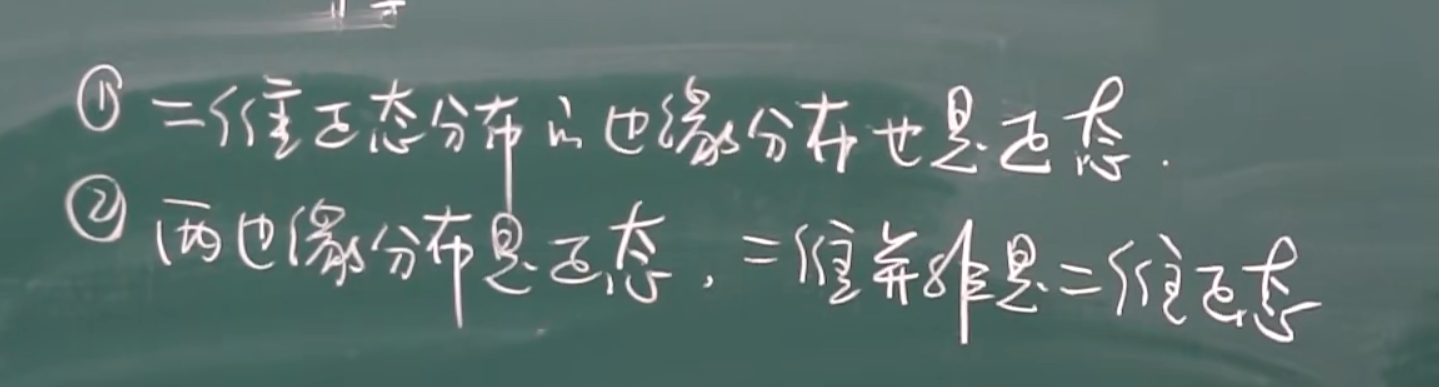 ① 二维正态分布的边缘分布也是正态.
② 两边缘分布是正态, 二维并非是二维正态